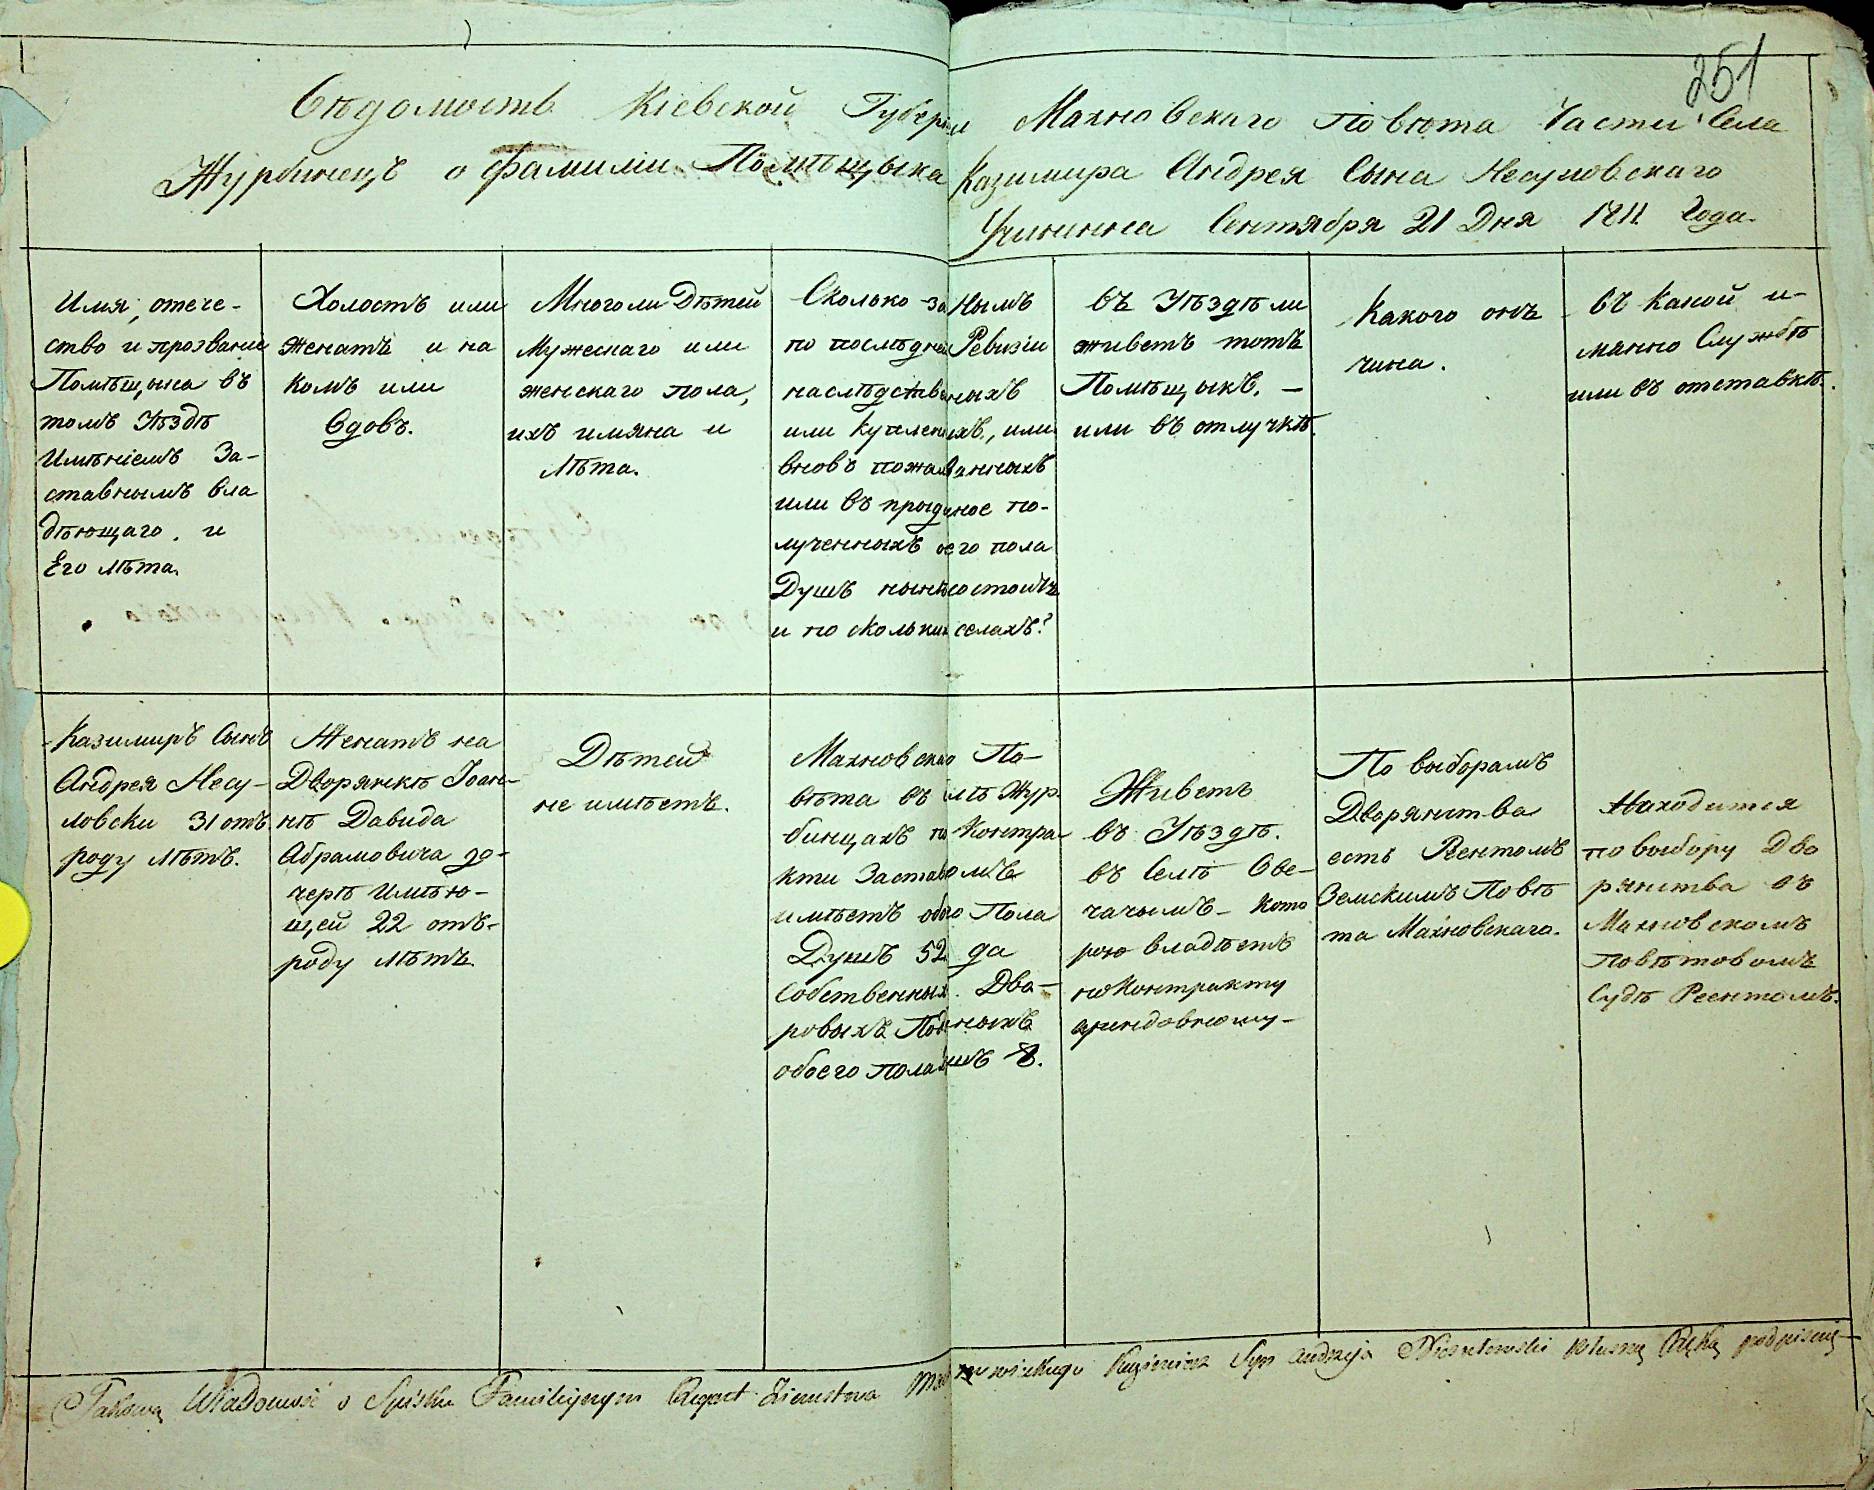 251
Вѣдомость Кіевской Губерніи Махновскаго Повѣта Части Села
Журбинецъ о фамиліи Помѣщыка Казимира Андрея Сына Несуловскаго
Учиннна Сентября 21 Дня 1811 Года.
Имя, отече-
ство и прозваніе
Помѣщыка въ
томъ Уѣздѣ
Имѣніемъ За-
ставнымъ вла
дѣющаго, и
Его лѣта.
Холостъ или
женатъ и на
комъ или
Вдовъ.
Много ли Дѣтей
мужескаго или
женскаго пола,
ихъ имяна и
лѣта.
Сколько за нымъ
по послѣдней Ревизіи
наслѣдственныхъ
или купленныхъ, или
вновъ пожалованныхъ
или въ прыданое по-
лученныхъ обоего пола
Душъ нынѣ состоитъ
и по сколькихъ селахъ?
въ Уѣздѣ ли
живетъ тотъ
Помѣщыкъ. —
или въ отлучкѣ.
Какого онъ
чина.
въ какой и-
мянно Службѣ
или въ отставкѣ.
Казимиръ Сынъ
Андрея Несу-
ловски 31 отъ
роду лѣтъ.
Женатъ на
Дворянкѣ Іоан-
нѣ Давида
Абрамовича до-
черѣ имѣю-
щей 22 отъ-
роду лѣтъ.
Дѣтей
не имѣетъ.
Махновскаго По-
вѣта въ селѣ Жур-
бинцахъ по Контра-
кти Заставномъ
имѣетъ обоего Пола
Душъ 52 да
собственныхъ Дво-
ровыхъ Подданныхъ
обоего пола душъ 8.
Живетъ
въ Уѣздѣ.
въ Селѣ Ове-
чачымъ- кото
рою владѣетъ
по Контракту
арендовному-
По выборамъ
Дворянства
есть Реентомъ
Земскимъ Повѣ
та Махновскаго.
Находится
по выбору Дво
рянства въ
Махновскомъ
повѣтовомъ
Судѣ Реентомъ.
Takową Wiadomość o Spisku Familijnym Regent Ziemstwa Machnowieckiego Kazimierz Syn Andrzeja Niesułowski własną Ręką podpisuię